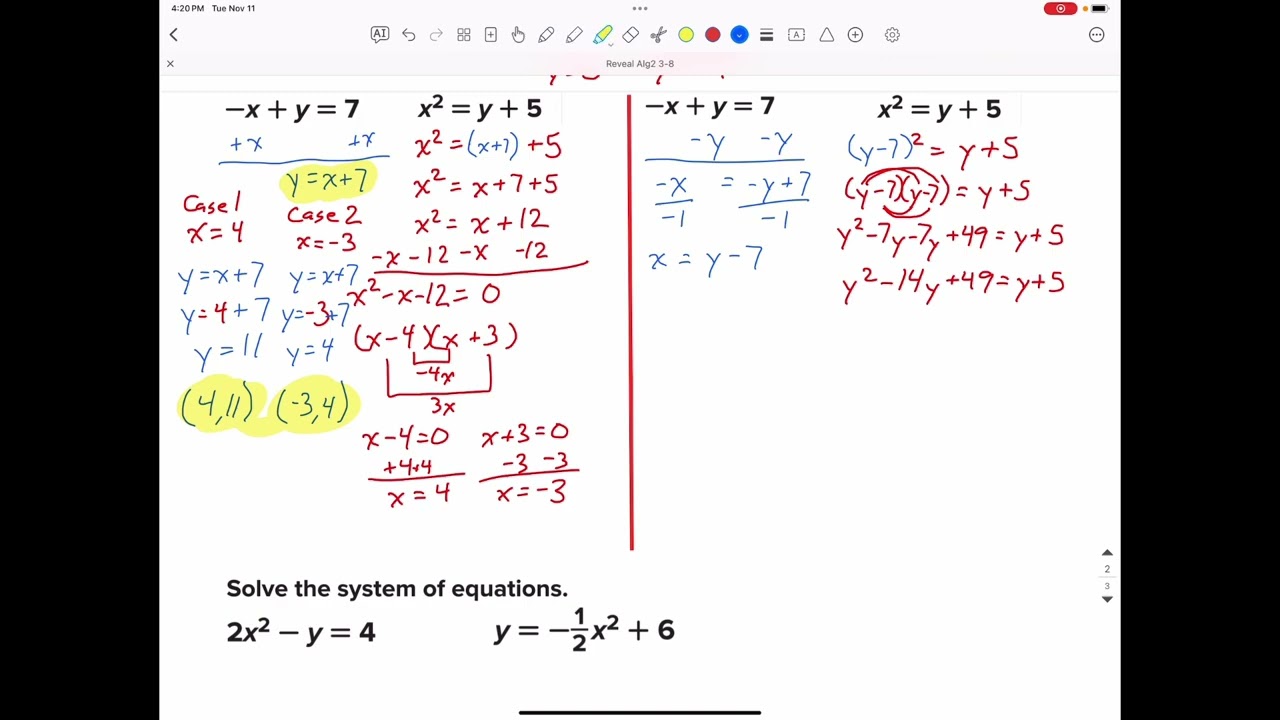 4:20 PM Tue Nov 11
AI
A
Reveal Alg2 3-8
−x + y = 7
+x +x
y = x+7
Case 1
x = 4
y = x+7
y = 4+7
y = 11
(4,11)
Case 2
x = -3
y = x+7
y = -3+7
y = 4
(-3,4)
x² = y + 5
x² = (x+7) +5
x² = x+7+5
x² = x+12
-x-12 -x -12
x²-x-12 = 0
(x-4)(x+3)
-4x
3x
x-4=0
+4+4
x = 4
x+3=0
-3 -3
x = -3
−x + y = 7
-y -y
-x = -y+7
-1 -1
x = y-7
x² = y + 5
(y-7)² = y+5
(y-7)(y-7) = y+5
y²-7y-7y+49 = y+5
y²-14y+49 = y+5
Solve the system of equations.
2x² − y = 4
y = −1/2x² + 6
2
3